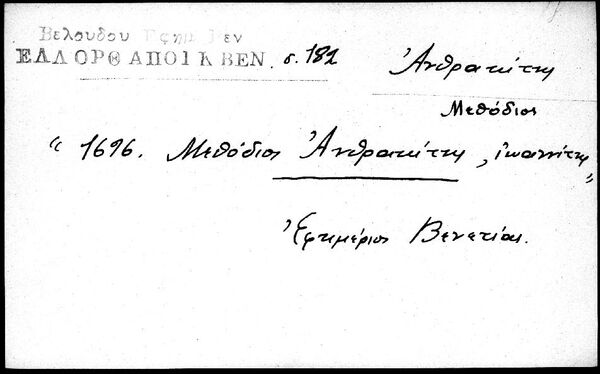 Βελουδου Εφημ Βεν
ΕΛΛ ΟΡΘ ΑΠΟΙΚ ΒΕΝ. σ. 182
Ἀνθρακίτης
Μεθόδιος
“ 1696. Μεθόδιος Ἀνθρακίτης, ἰωαννίτης „
Ἐφημέριος Βενετίας.